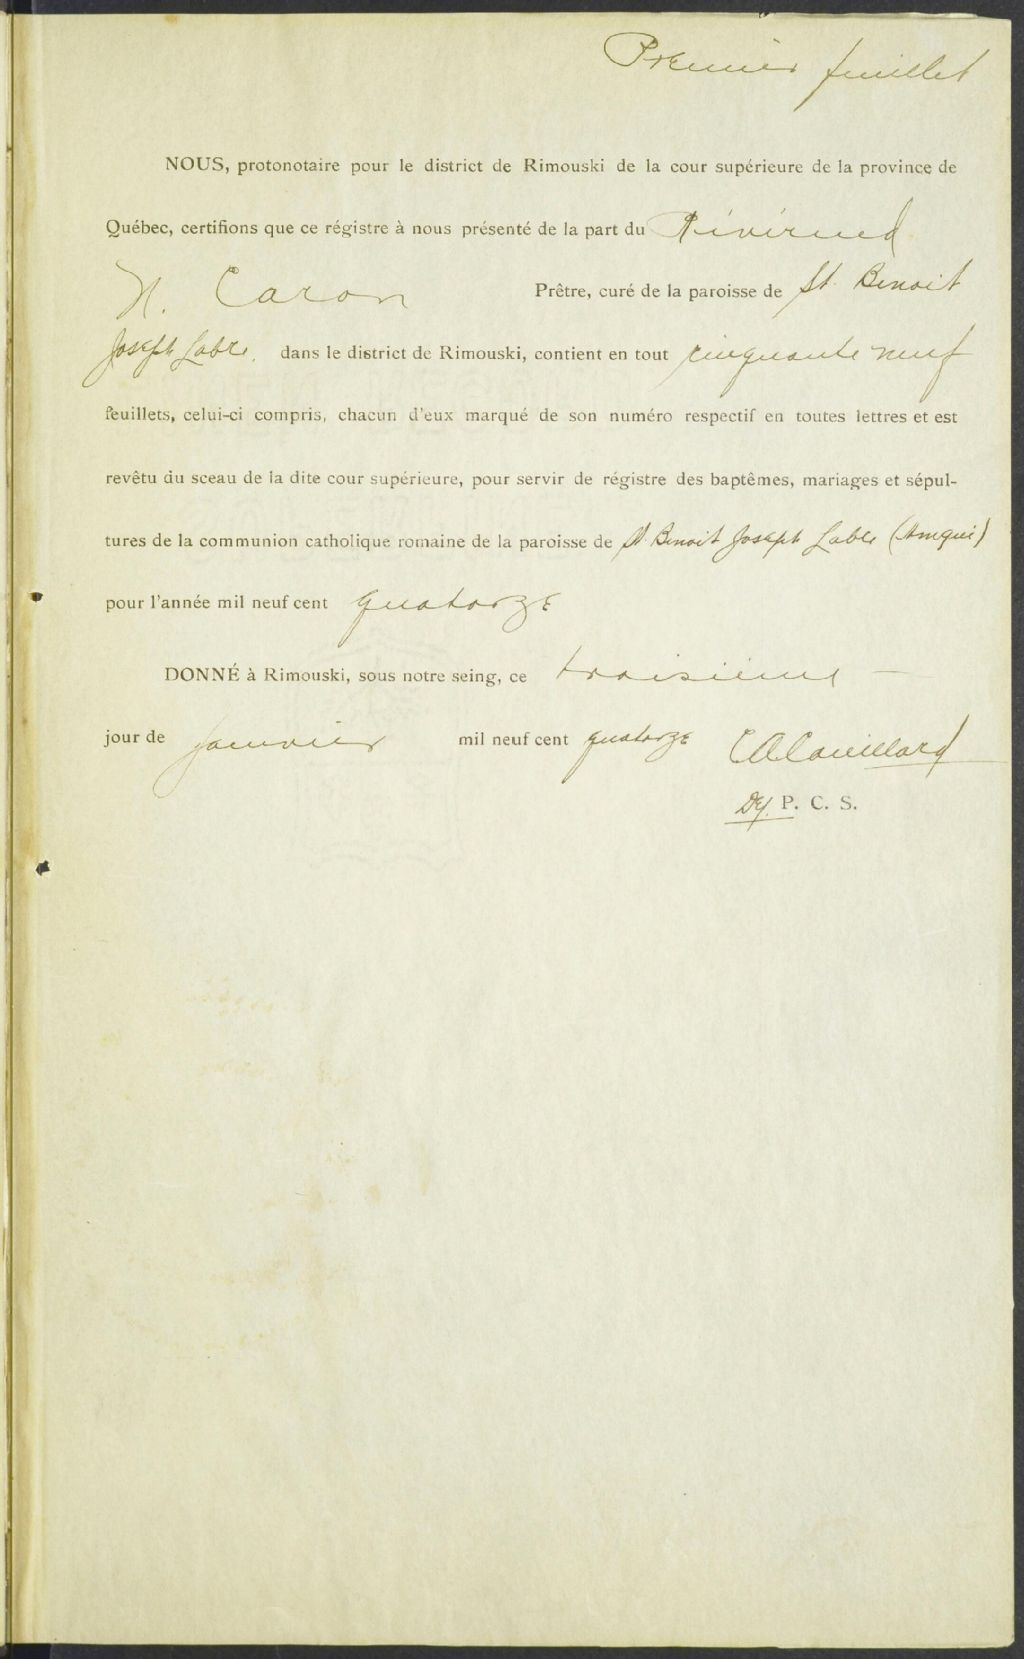 Premier feuillet
NOUS, protonotaire pour le district de Rimouski de la cour supérieure de la province de
Québec, certifions que ce régistre à nous présenté de la part du Révérend
N. Caron Prêtre, curé de la paroisse de St Benoit
Joseph Labre, dans le district de Rimouski, contient en tout cinquante neuf
feuillets, celui-ci compris, chacun d'eux marqué de son numéro respectif en toutes lettres et est
revêtu du sceau de la dite cour supérieure, pour servir de régistre des baptêmes, mariages et sépul-
tures de la communion catholique romaine de la paroisse de St Benoit Joseph Labre (Amqui)
pour l'année mil neuf cent quatorze
DONNÉ à Rimouski, sous notre seing, ce troisième —
jour de janvier mil neuf cent quatorze
Dy. P. C. S.